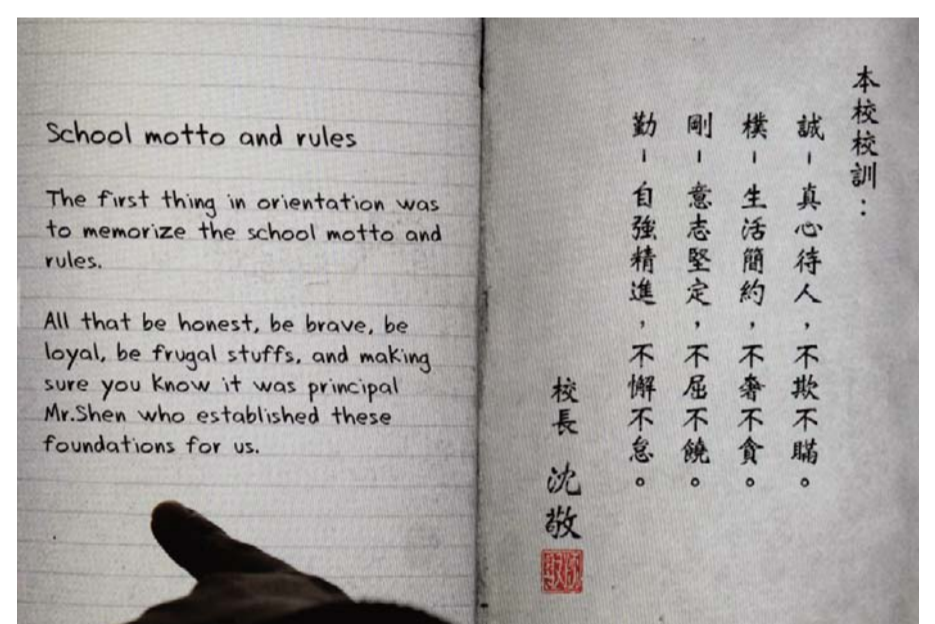 School motto and rules
The first thing in orientation was
to memorize the school motto and
rules.
All that be honest, be brave, be
loyal, be frugal stuffs, and making
sure you know it was principal
Mr.Shen who established these
foundations for us.
本校校訓：
誠-真心待人，不欺不瞞。
樸-生活簡約，不奢不貪。
剛-意志堅定，不屈不饒。
勤-自強精進，不懈不怠。
校長 沈敬